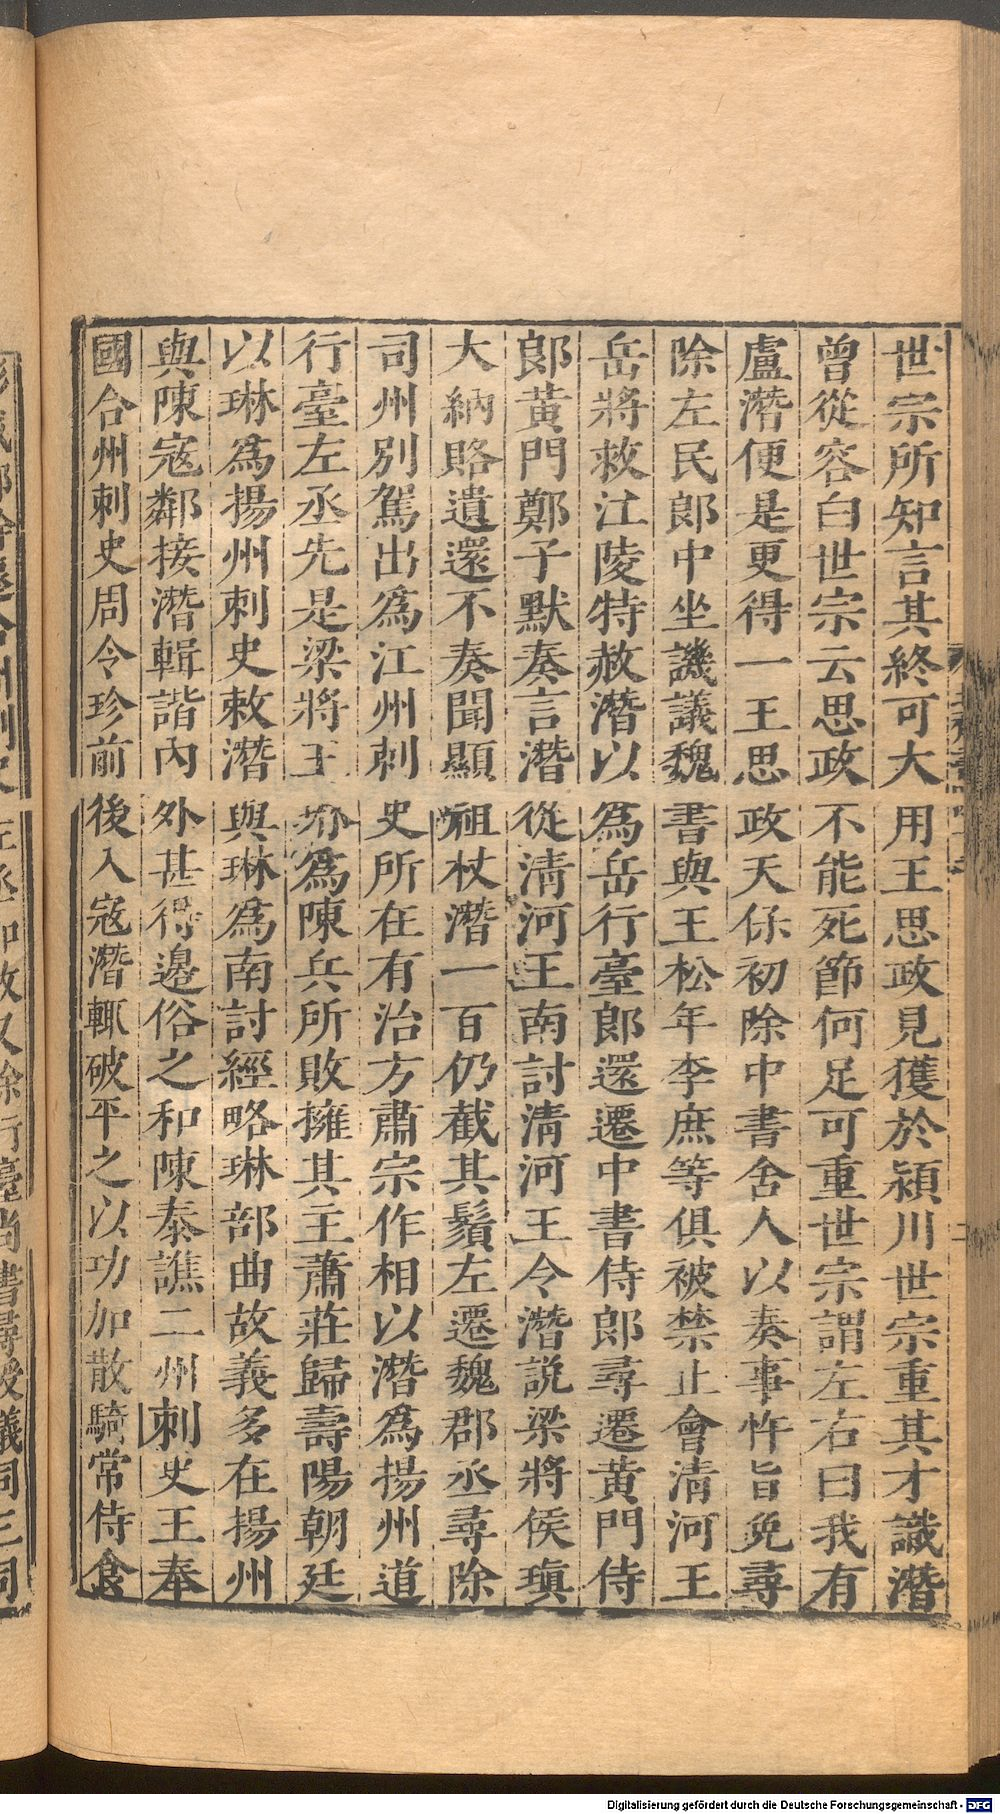 世宗所知言其終可大用王思政見獲於潁川世宗重其才識潛
曾從容白世宗云思政不能死節何足可重世宗謂左右曰我有
盧潛便是更得一王思政天保初除中書舍人以奏事忤旨免尋
除左民郎中坐譏議魏書與王松年李庶等俱被禁止會清河王
岳將救江陵特赦潛以為岳行臺郎還遷中書侍郎尋遷黃門侍
郎黃門鄭子默奏言潛從清河王南討清河王令潛說梁將侯瑱
大納賂遺還不奏聞顯祖杖潛一百仍截其鬚左遷魏郡丞尋除
司州別駕出為江州刺史所在有治方肅宗作相以潛為揚州道
行臺左丞先是梁將王琳為陳兵所敗擁其主蕭莊歸壽陽朝廷
以琳為揚州刺史敕潛與琳為南討經略琳部曲故義多在揚州
與陳寇鄰接潛輯諧內外甚得邊俗之和陳秦譙二州刺史王奉
國合州刺史周令珍前後入寇潛輒破平之以功加散騎常侍食
Digitalisierung gefördert durch die Deutsche Forschungsgemeinschaft - DFG